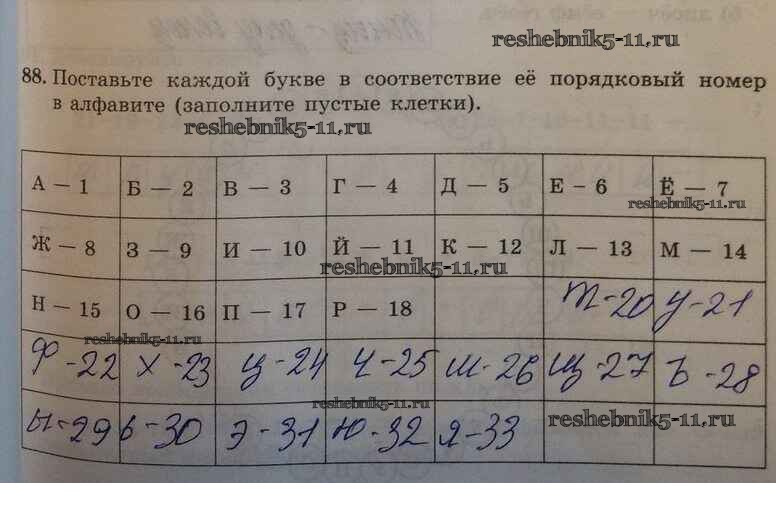 reshebnik5-11.ru
88. Поставьте каждой букве в соответствие её порядковый номер
в алфавите (заполните пустые клетки).
reshebnik5-11.ru
А — 1 Б — 2 В — 3 Г — 4 Д — 5 Е - 6 Ё — 7
reshebnik5-11.ru
Ж — 8 З — 9 И — 10 Й — 11 К — 12 Л — 13 М — 14
reshebnik5-11.ru
Н — 15 О — 16 П — 17 Р — 18 Т-20 У-21
reshebnik5-11.ru
Ф-22 Х-23 Ц-24 Ч-25 Ш-26 Щ-27 Ъ-28
reshebnik5-11.ru
reshebnik5-11.ru
Ы-29 Ь-30 Э-31 Ю-32 Я-33